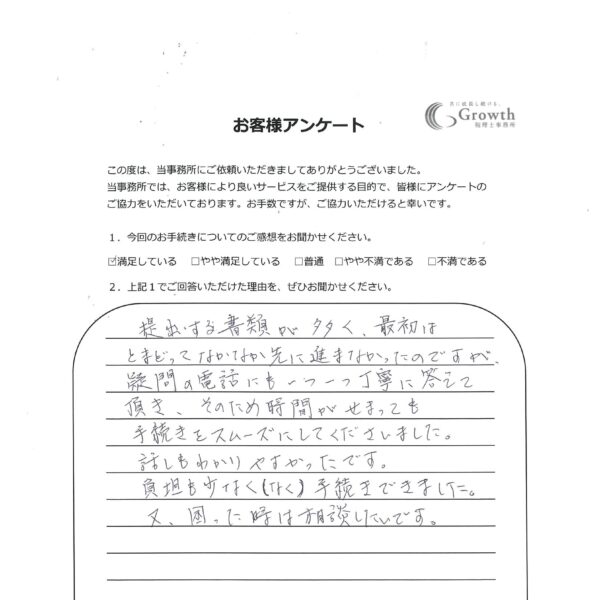 共に成長し続ける。
Growth
税理士事務所
お客様アンケート
この度は、当事務所にご依頼いただきましてありがとうございました。
当事務所では、お客様により良いサービスをご提供する目的で、皆様にアンケートの
ご協力をいただいております。お手数ですが、ご協力いただけると幸いです。
1．今回のお手続きについてのご感想をお聞かせください。
☑満足している　□やや満足している　□普通　□やや不満である　□不満である
2．上記1でご回答いただけた理由を、ぜひお聞かせください。
提出する書類が多く、最初は
とまどってなかなか先に進まなかったのですが、
疑問の電話にも一つ一つ丁寧に答えて
頂き、そのため時間がせまっても
手続きをスムーズにしてくださいました。
話しもわかりやすかったです。
負担も少なく(なく)手続きできました。
又、困った時は相談したいです。